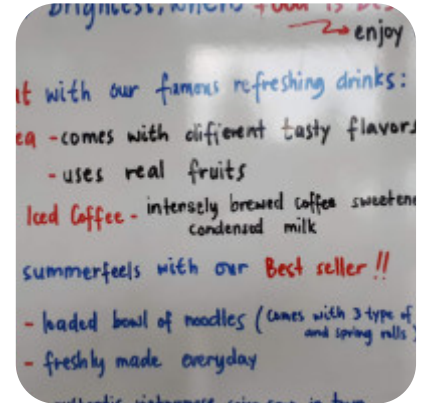 brightest, where food is best
enjoy
with our famous refreshing drinks:
- comes with different tasty flavors
- uses real fruits
Iced Coffee - intensely brewed coffee sweetene
condensed milk
summerfeels with our Best seller !!
- loaded bowl of noodles (comes with 3 type of
and spring rolls)
- freshly made everyday